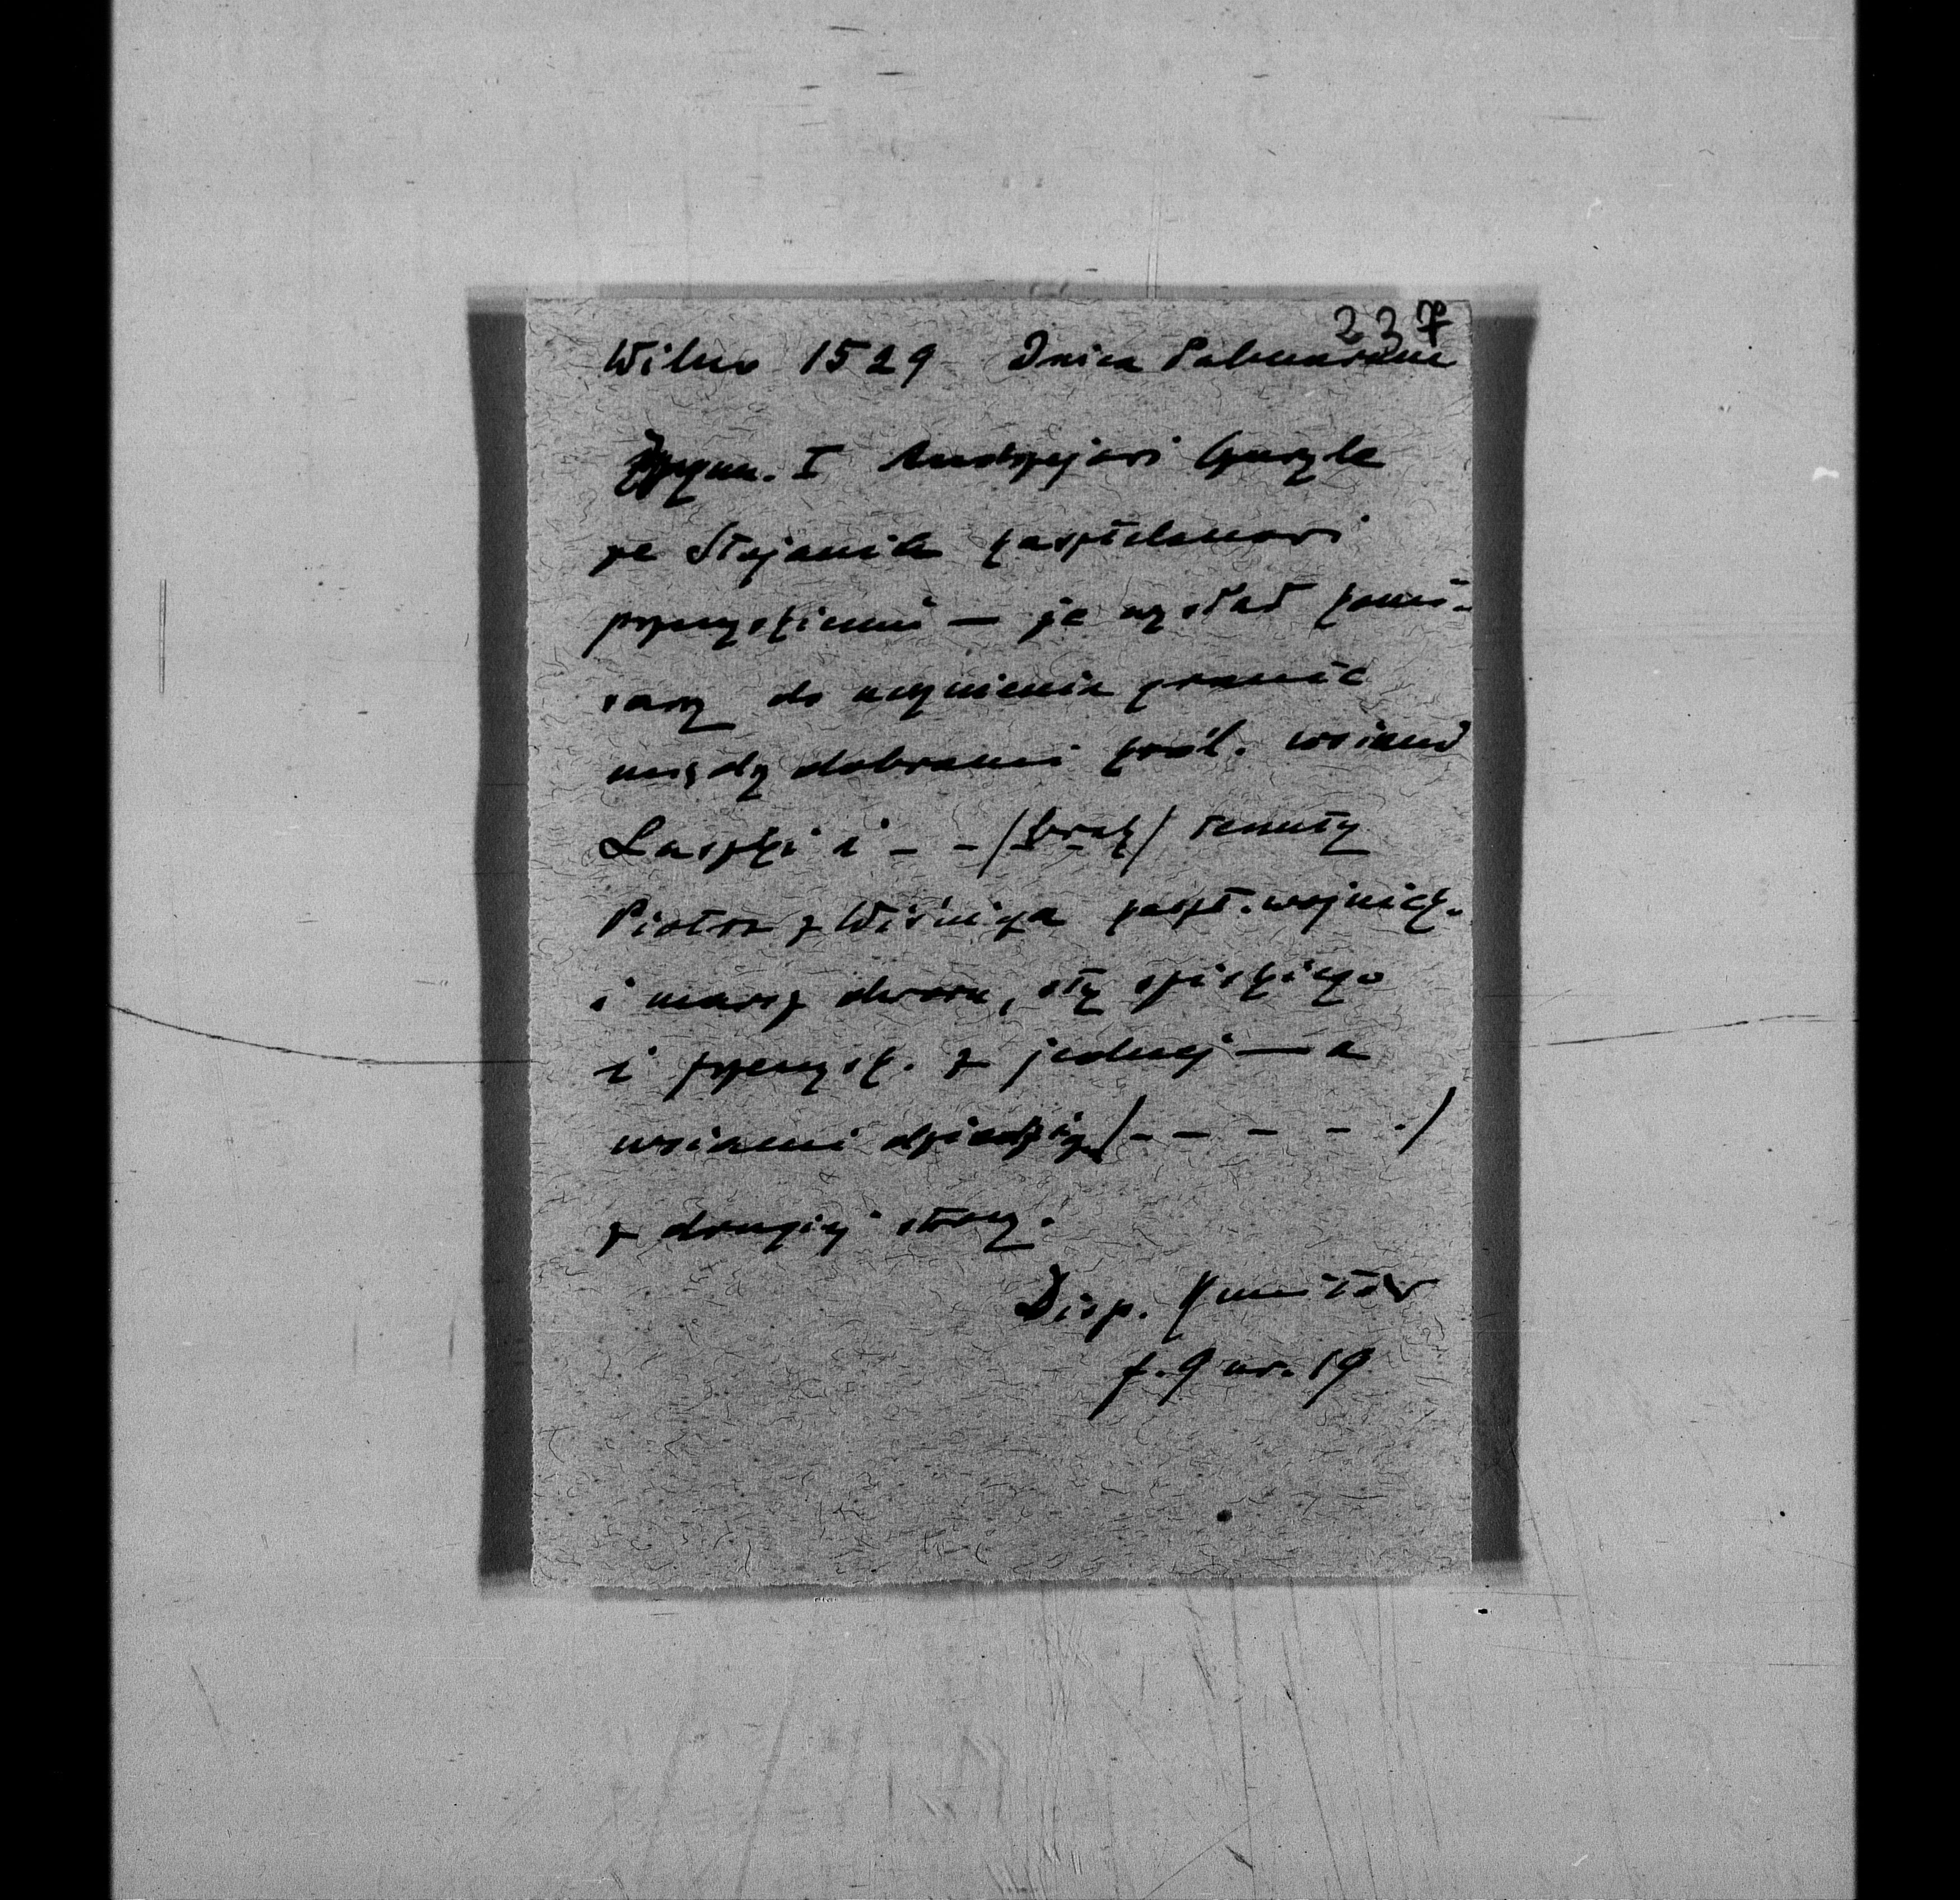 237
Wilno 1529 Dnica Palmarum
Zygm. I Andrzejowi
ze Stojanic kasztelanowi
przemyskiemu — że wysłał komi-
sarzy do uczynienia granic
między dobrami król. wsiami
Laszki i - - /brak/ tenuty
Piotra z Wiśnicza kaszt. wojnick.
i marsz dworu, sty spiskiego
i przemysk. z jednej — a
wsiami dziedzicz /- - - - -/
z drugiej strony.
Disp. Kmitów
f. 9 nr. 19